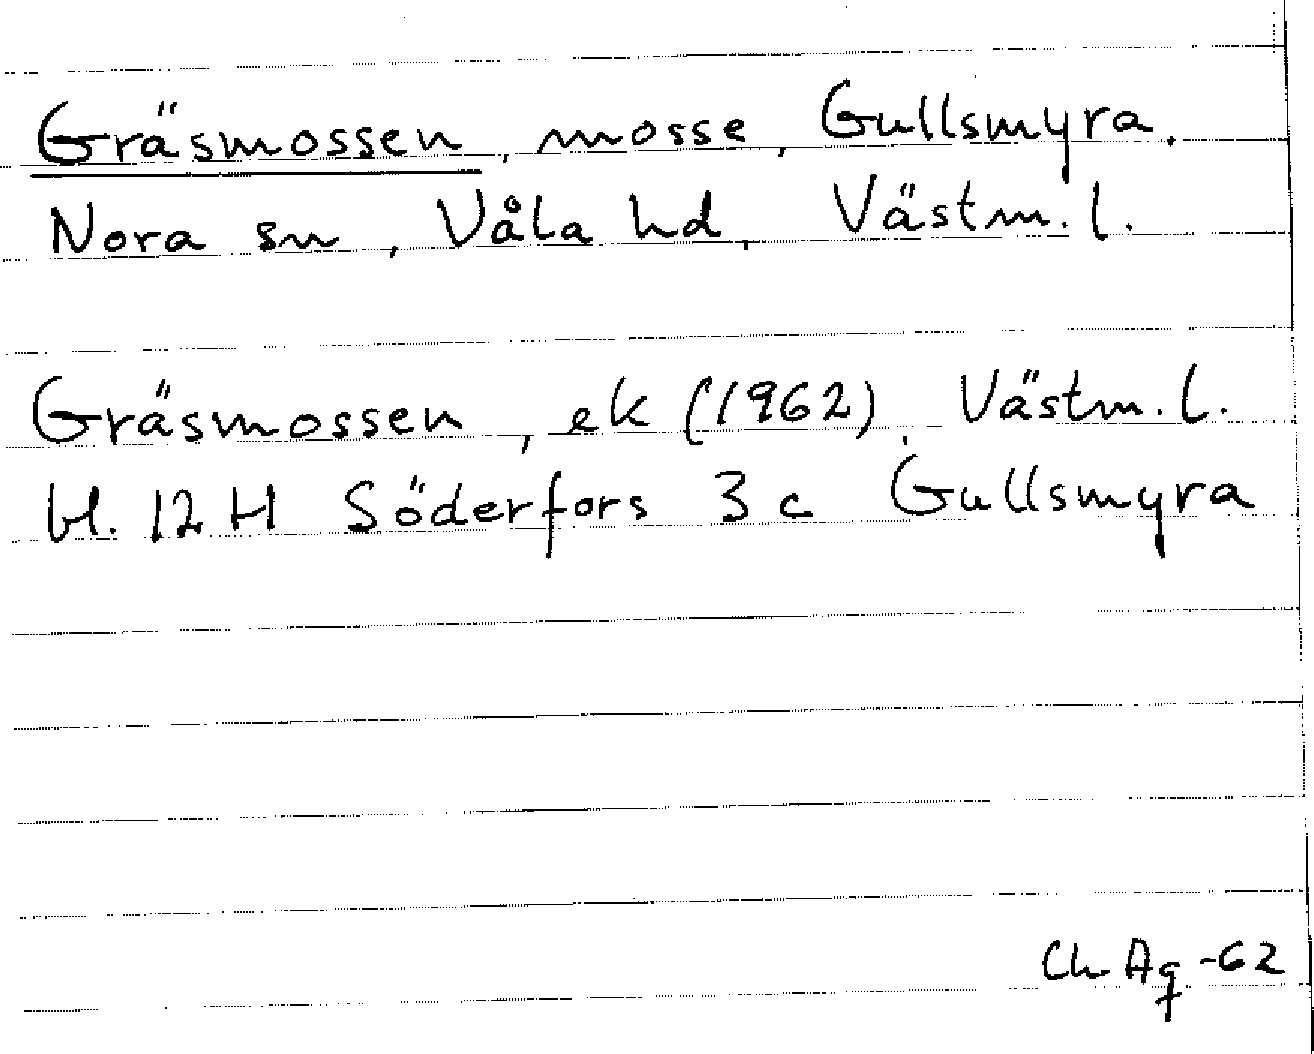 Gräsmossen, mosse, Gullsmyra.
Nora sn, Våla hd, Västm. l.
Gräsmossen, ek (1962). Västm. l.
bl. 12 H Söderfors 3 c Gullsmyra
Ch Ag -62